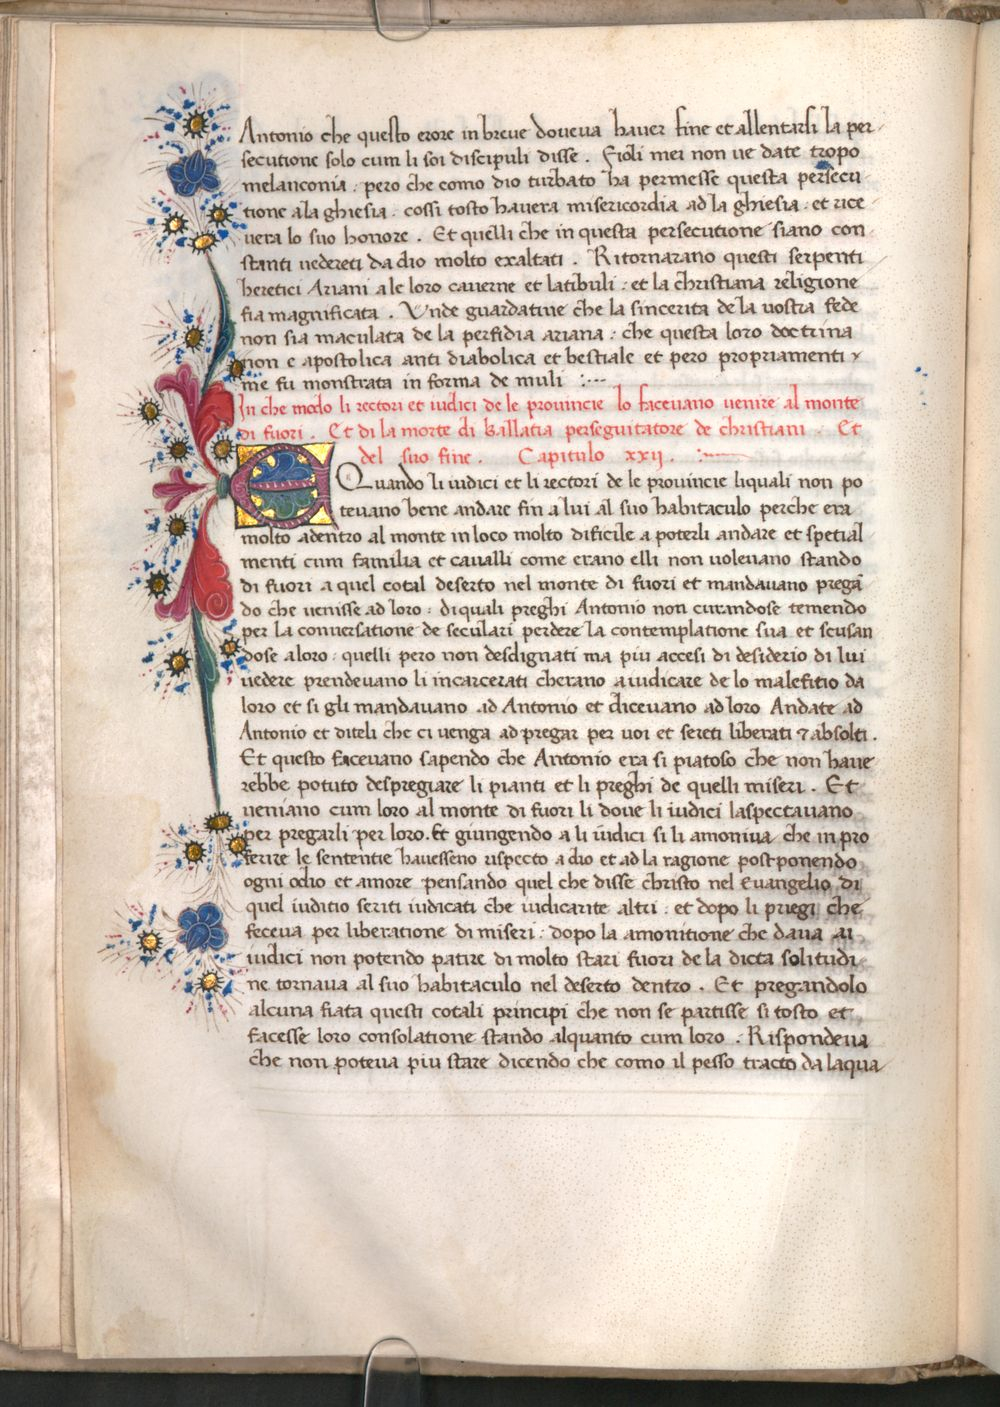 Antonio che questo erore in breve doveva haver fine et allentarsi la per
secutione solo cum li soi discipuli disse . Fioli mei non ve date tropo
melanconia . pero che como dio turbato ha permesse questa persecu
tione a la ghiesia . cossi tosto havera misericordia ad la ghiesia . et rice
vera lo suo honore . Et quelli che in questa persecutione siano con
stanti vedereti da dio molto exaltati . Ritornarano questi serpenti
heretici Ariani a le loro caverne et latibuli : et la christiana religione
fia magnificata . Unde guardative che la sincerita de la vostra fede
non sia maculata de la perfidia ariana : che questa loro doctrina
non e apostolica anti diabolica et bestiale et pero propriamenti
me fu monstrata in forma de muli :
In che modo li rectori et iudici de le provincie lo facevano venire al monte
di fuori . Et di la morte di Ballatia perseguitatore de christiani . Et
del suo fine . Capitulo xxij .
Quando li iudici et li rectori de le provincie liquali non po
tevano bene andare fin a lui al suo habitaculo perche era
molto adentro al monte in loco molto dificile a poterli andare et spetial
menti cum familia et cavalli come erano elli non volevano stando
di fuori a quel cotal deserto nel monte di fuori et mandavano pregā
do che venisse ad loro : di quali preghi Antonio non curandose temendo
per la conversatione de seculari perdere la contemplatione sua et scusan
dose a loro : quelli pero non desdignati ma piu accesi di desiderio di lui
vedere prendevano li incarcerati cherano a iudicare de lo malefitio da
loro et si gli mandavano ad Antonio et dicevano ad loro Andate ad
Antonio et diteli che ci venga ad pregar per voi et sereti liberati ⁊ absolti .
Et questo facevano sapendo che Antonio era si piatoso che non have
rebbe potuto despregiare li pianti et li preghi de quelli miseri . Et
veniano cum loro al monte di fuori li dove li iudici laspectavano
per pregarli per loro . Et giungendo a li iudici si li amoniva che in pro
ferire le sententie havesseno rispecto a dio et ad la ragione postponendo
ogni odio et amore pensando quel che disse christo nel Evangelio di
quel iuditio seriti iudicati che iudicarite altri : et dopo li priegi che
feceva per liberatione di miseri : dopo la amonitione che dava ai
iudici non potendo patire di molto stari fuori de la dicta solitudi
ne tornava al suo habitaculo nel deserto dentro . Et pregandolo
alcuna fiata questi cotali principi che non se partisse si tosto et
facesse loro consolatione stando alquanto cum loro . Rispondeva
che non poteva piu stare dicendo che como il pesso tracto da laqua